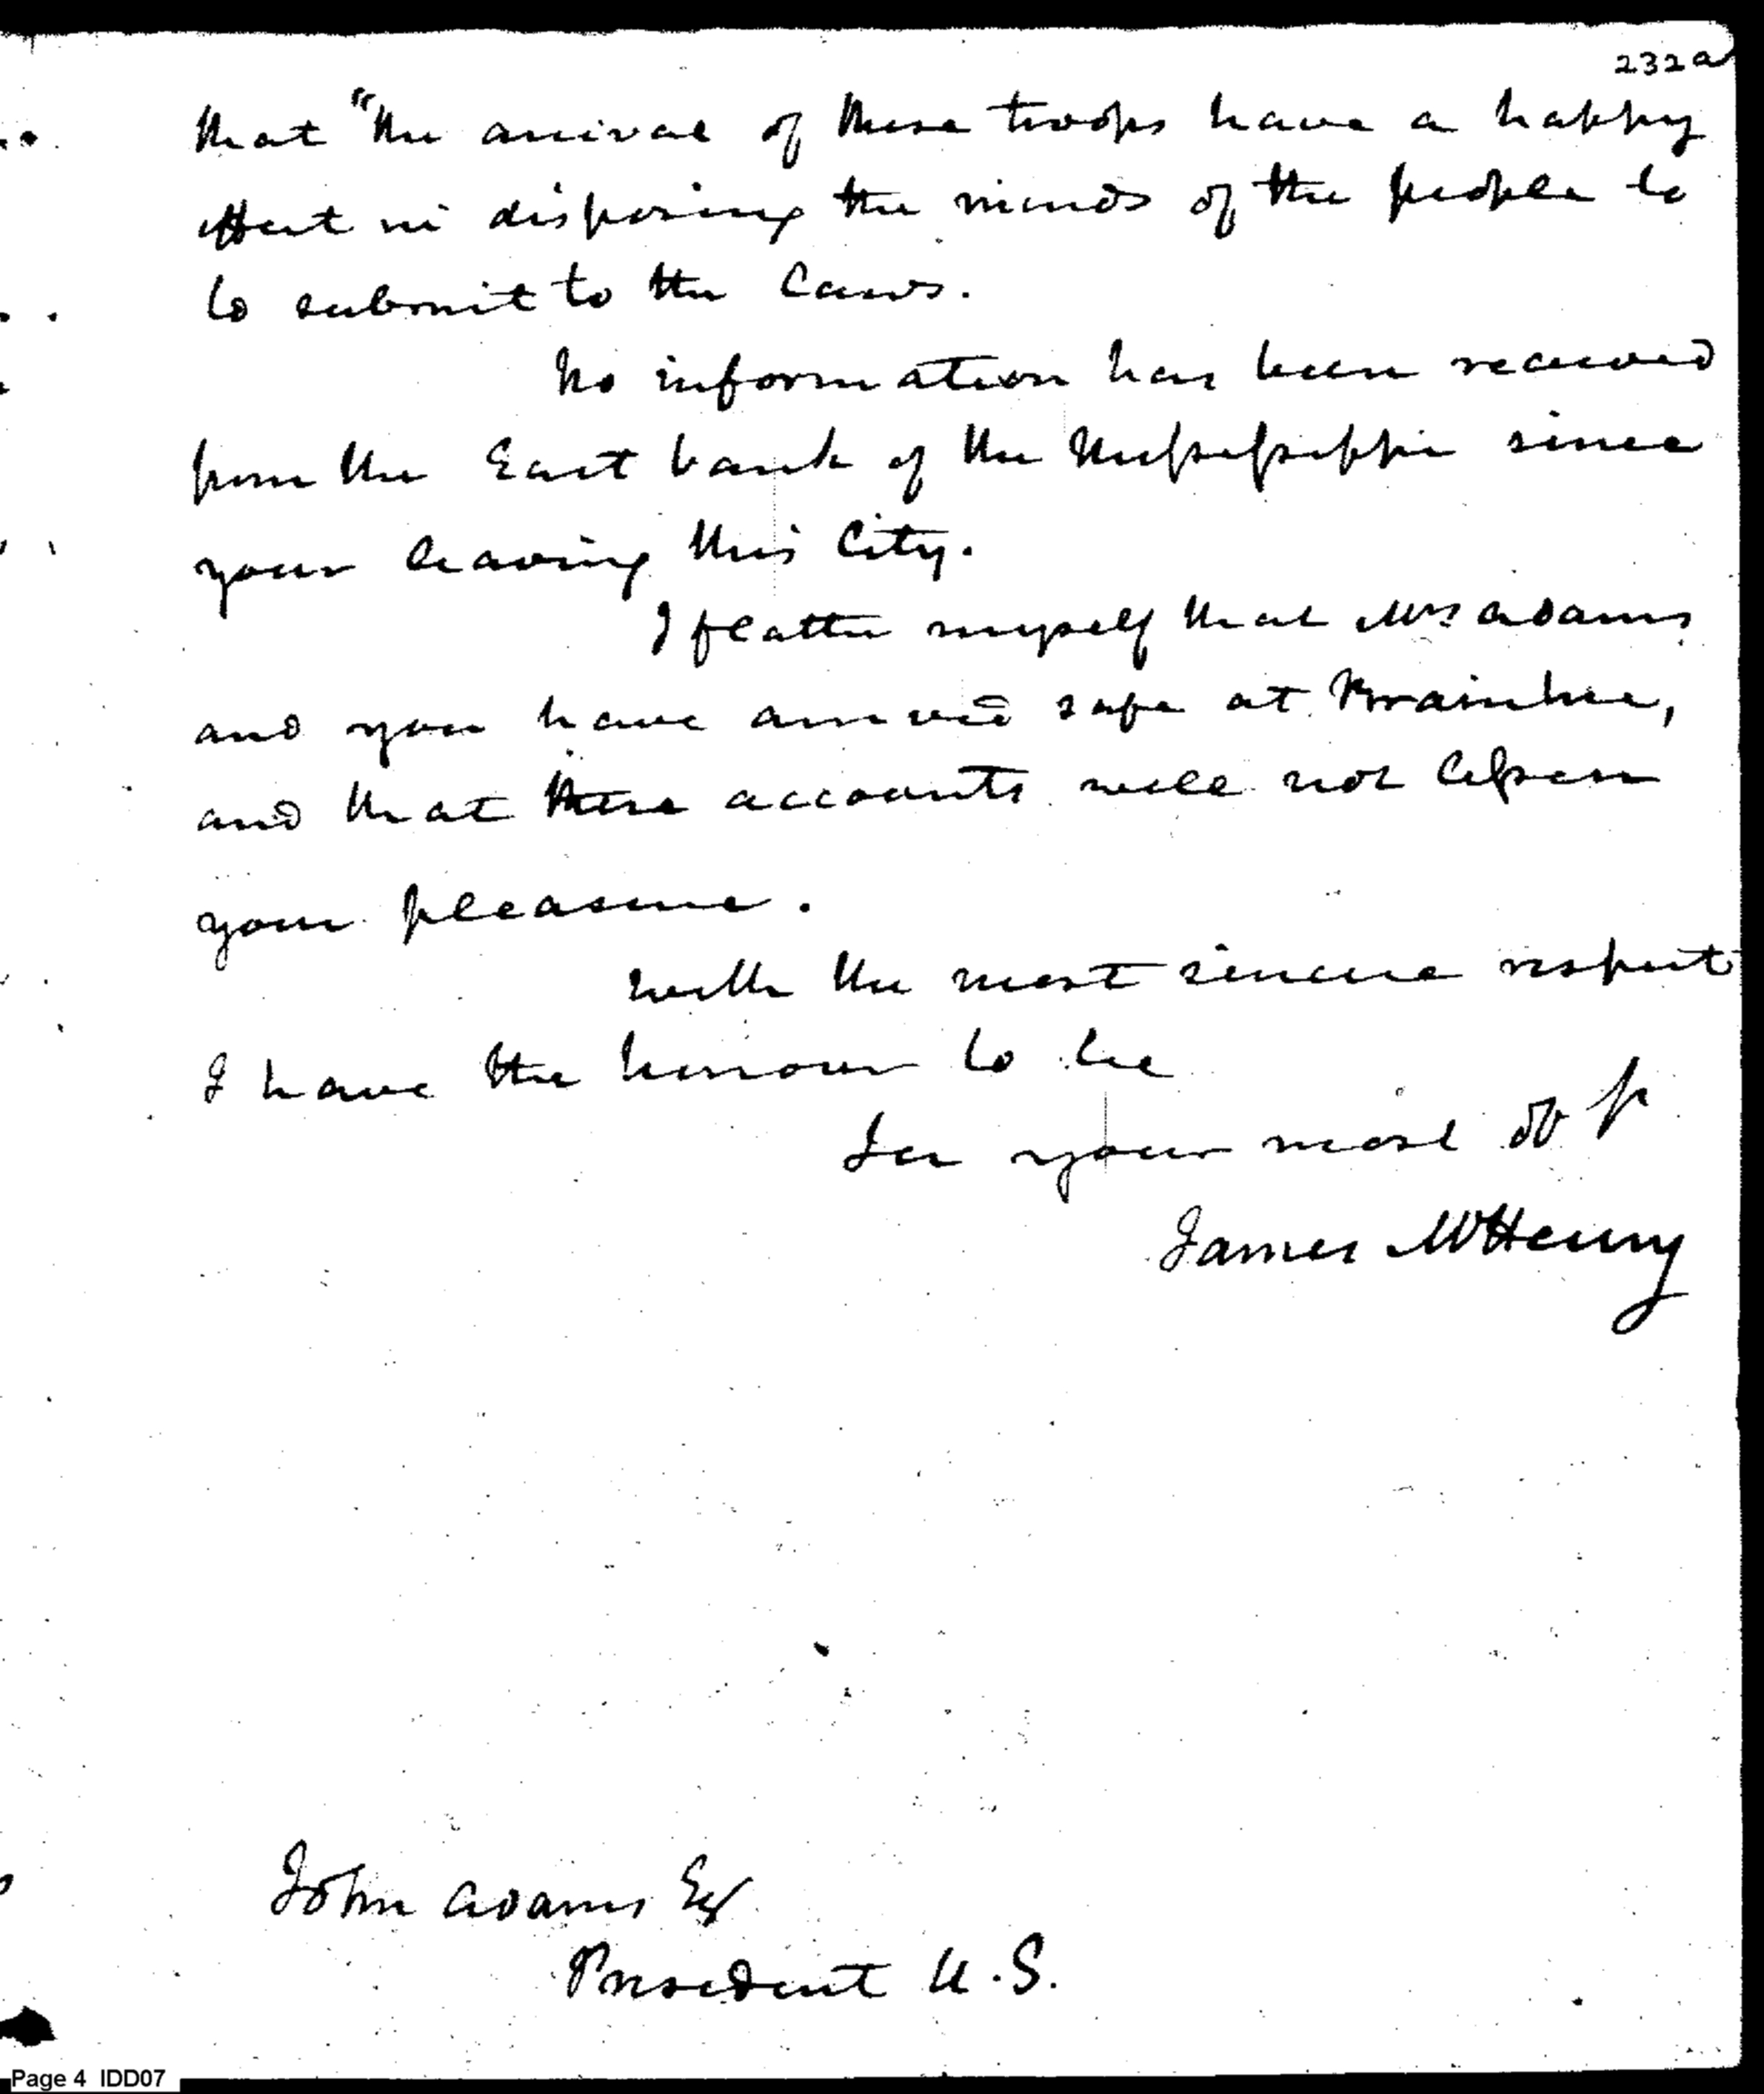 232a
that "the arrival of these troops have a happy
effect in disposing the minds of the people to
to submit to the laws.
No information has been received
from the East bank of the Mississippi since
your leaving this City.
I flatter myself that Mrs Adams
and you have arrived safe at Braintree,
and that these accounts will not lessen
your pleasure.
with the most sincere respect
I have the honour to be
Sir your most ob
James McHenry
John Adams Esq
President U.S.
Page 4 IDD07